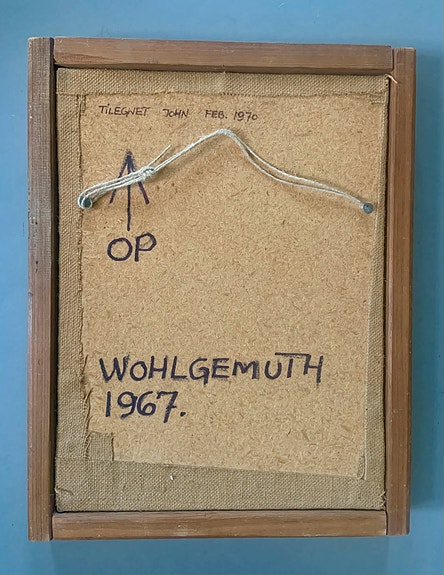 TILEGNET JOHN FEB. 1970
OP
WOHLGEMUTH
1967.